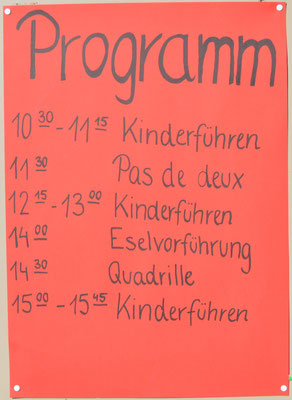 Programm
10 30 - 11 15 Kinderführen
11 30 Pas de deux
12 15 - 13 00 Kinderführen
14 00 Eselvorführung
14 30 Quadrille
15 00 - 15 45 Kinderführen